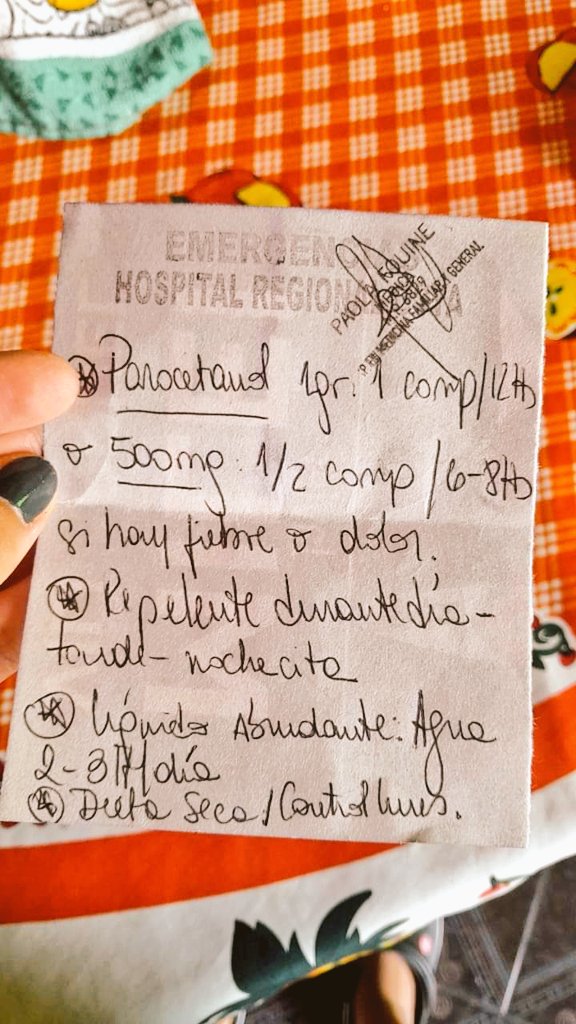 EMERGEN
HOSPITAL REGIONA
PAOLA
MEDICINA FAMILIAR GENERAL
Paracetamol 1gr: 1 comp/12Hs
o 500mg: 1/2 comp/6-8Hs
si hay fiebre o dolor.
Repelente durante día-
tarde- nochecita
Líquido Abundante: Agua
2-3 lt/día
Dieta Seca/Control lunes.